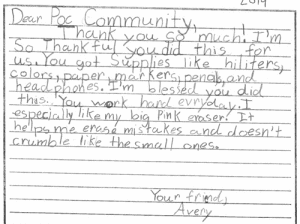 2019
Dear Poc Community,
Thank you so much. I'm
So Thankful you did this for
us. You got Supplies like hiliters,
colors, paper, markers, pencils, and
headphones. I'm blessed you did
this. You work hard evryday. I
especially like my big pink eraser. It
helps me erase mistakes and doesn't
crumble like the small ones.
Your frind,
Avery